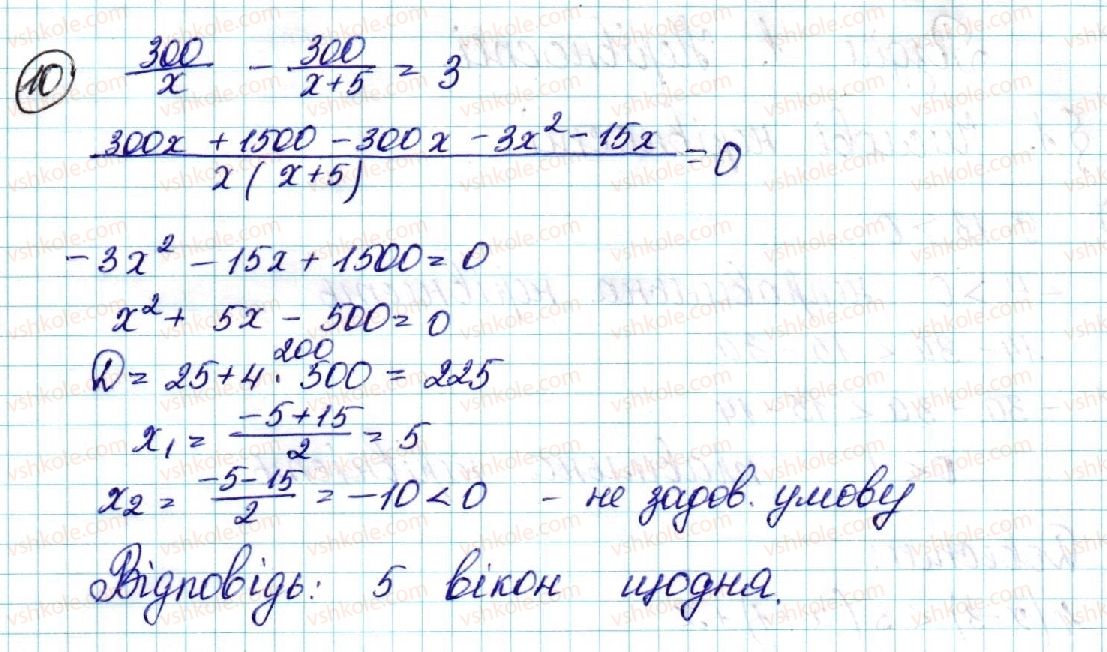 10 300/x - 300/(x+5) = 3
(300x + 1500 - 300x - 3x² - 15x)/(x(x+5)) = 0
-3x² - 15x + 1500 = 0
x² + 5x - 500 = 0
200
D = 25 + 4 · 500 = 225
x₁ = (-5+15)/2 = 5
x₂ = (-5-15)/2 = -10 < 0 - не задов. умову
Відповідь: 5 вікон щодня.